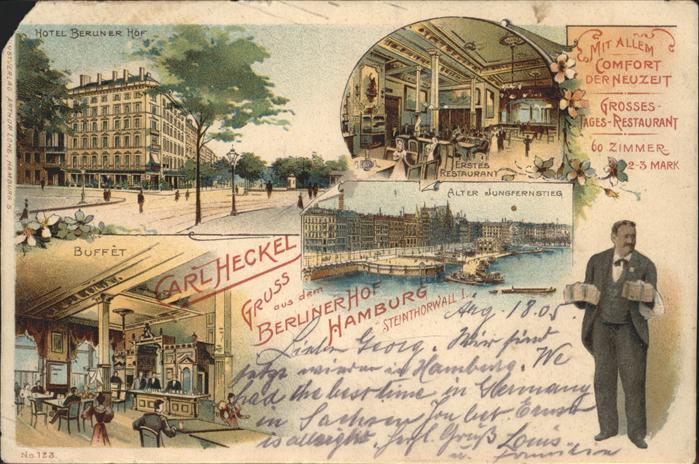 HOTEL BERLINER HOF
KUNSTVERLAG ARTHUR HAMBURG 5
ERSTES
RESTAURANT
MIT ALLEM
COMFORT
DER NEUZEIT
GROSSES-
TAGES-RESTAURANT
60 ZIMMER
2-3 MARK
ALTER JUNGFERNSTIEG
BUFFÊT
CARL HECKEL
GRUSS
AUS DEM
BERLINER HOF
HAMBURG
STEINTHORWALL 1.
Aug. 18.05
Lieber Georg. Wir sind
jetzt wieder in Hamburg. We
had the best time in Germany
in Sachsen Ernst
is allright. Grüß Louis
u.
No. 123.